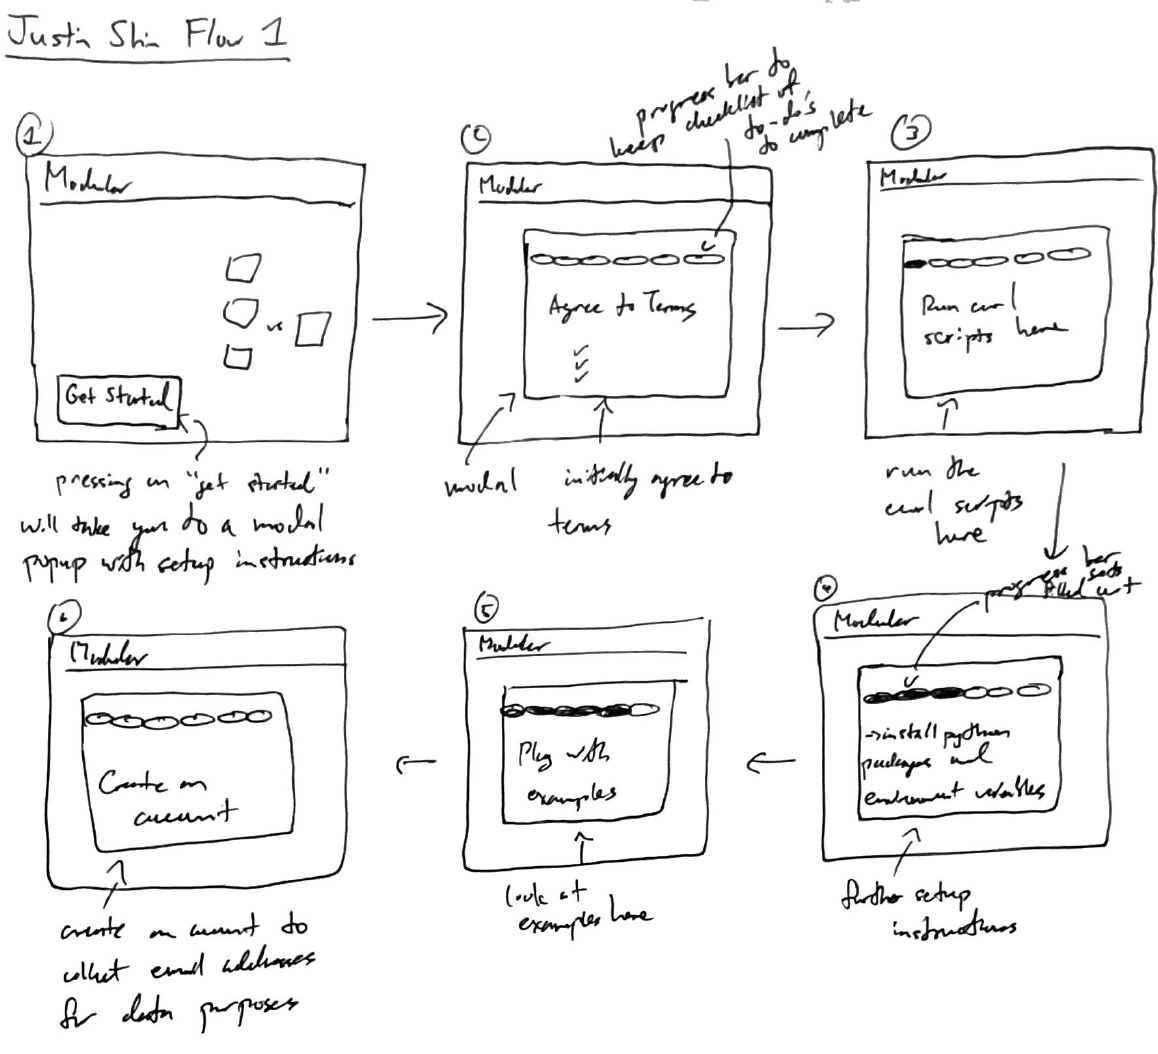 Justin Shin Flow 1
1
Modular
vs
Get Started
pressing on "get started"
will take you to a modal
popup with setup instructions
2
progress bar to
keep checklist of
to-do's
to complete
Modular
Agree to Terms
modal
initially agree to
terms
3
Modular
Run curl
scripts here
run the
curl scripts
here
4
progress bar
gets
filled out
Modular
→install python
packages and
environment variables
further setup
instructions
5
Modular
Play with
examples
look at
examples here
6
Modular
Create an
account
create an account to
collect email addresses
for data purposes